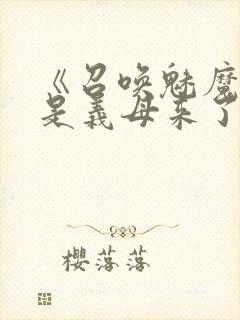 《召唤魅魔
是义母来了
樱落落